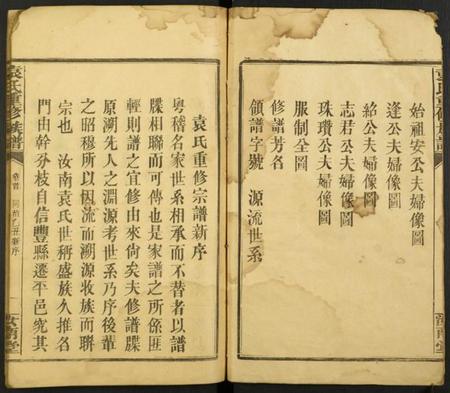 始祖安公夫婦像圖
逢公夫婦像圖
紹公夫婦像圖
志君公夫婦像圖
珠瓚公夫婦像圖
服制全圖
修譜芳名
領譜字號 源流世系
袁氏重修宗譜新序
粵稽名家世系相承而不替者以譜
牒相聯而可傳也是家譜之所係匪
輕則譜之宜修由來尙矣夫修譜牒
原溯先人之淵源考世系乃序後輩
之昭穆所以因流而溯源收族而聯
宗也 汝南袁氏世稱盛族久推名
門由幹分枝自信豐縣遷平邑究其
袁氏重修族譜
卷首
汝南堂